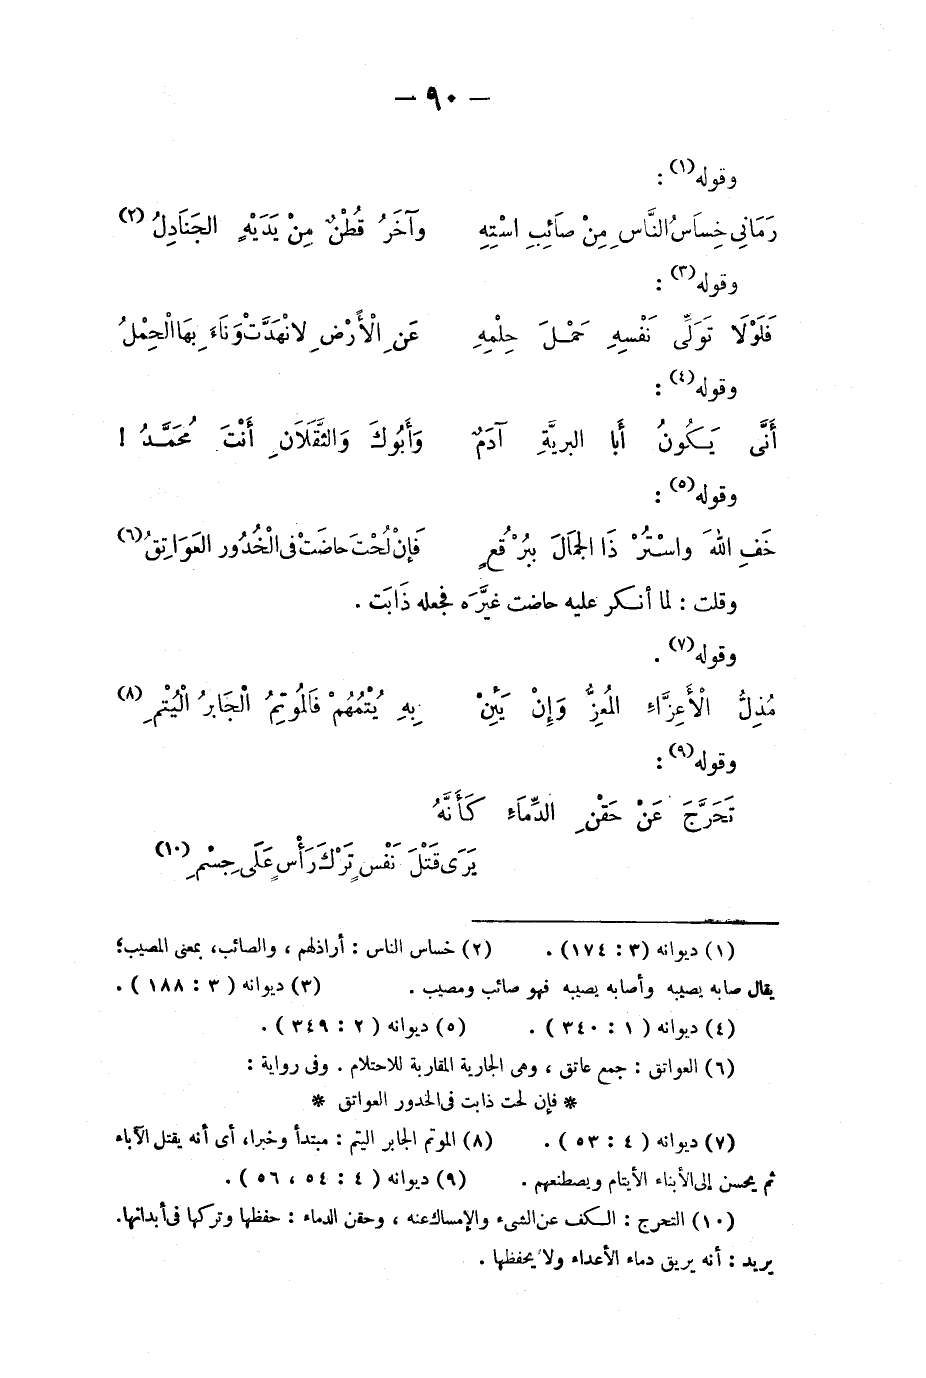 — ٩٠ —
وقوله(١) :
رَمَانِى خِسَاسُ النَّاسِ مِنْ صَائِبِ اسْتِهِ وآخَرُ قُطْنٌ مِنْ يَدَيْهِ الجَنَادِلُ (٢)
وقوله(٣) :
فَلَوْلَا تَوَلِّى نَفْسِهِ حَمْلَ حِلْمِهِ عَنِ الْأَرْضِ لانْهَدَّتْ وَنَاءَ بِهَا الْحِمْلُ
وقوله(٤) :
أَنَّى يَكُونُ أَبا البريَّةِ آدَمٌ وَأَبُوكَ وَالثَّقَلَانِ أَنْتَ مُحَمَّدُ !
وقوله(٥) :
خَفِ اللهَ واسْتُرْ ذَا الجَمَالَ بِبُرْقُعٍ فَإِنْ لُحْتَ حاضَتْ فى الْخُدُورِ العَوَاتِقُ(٦)
وقلت : لما أنكر عليه حاضت غيَّرَه فجعله ذَابَت .
وقوله(٧) .
مُذِلُّ الْأَعِزَّاءِ المُعِزُّ وَإِنْ يَئِنْ بِهِ يُتْمُهُمْ فَالمُوتِمُ الْجَابِرُ الْيُتْمِ (٨)
وقوله(٩) :
تَحَرَّجَ عَنْ حَقْنِ الدِّمَاءِ كَأَنَّهُ
يَرَى قَتْلَ نَفْسٍ تَرْكَ رَأْسٍ عَلَى جِسْمِ (١٠)
(١) ديوانه (٣ : ١٧٤). (٢) خساس الناس : أراذلهم ، والصائب، بمعنى المصيب؛
يقال صابه يصيبه وأصابه يصيبه فهو صائب ومصيب . (٣) ديوانه ( ٣ : ١٨٨ ) .
(٤) ديوانه ( ١ : ٣٤٠ ) . (٥) ديوانه ( ٢ : ٣٤٩ ) .
(٦) العواتق : جمع عاتق ، وهى الجارية المقاربة للاحتلام . وفى رواية :
* فإن لحت ذابت فى الخدور العواتق *
(٧) ديوانه ( ٤ : ٥٣ ) . (٨) الموتم الجابر اليتم : مبتدأ وخبرا، أى أنه يقتل الآباء
ثم يحسن إلى الأبناء الأيتام ويصطنعهم . (٩) ديوانه ( ٤ : ٥٤ ، ٥٦ ) .
(١٠) التحرج : الكف عن الشىء والإمساك عنه ، وحقن الدماء : حفظها وتركها فى أبدانها.
يريد : أنه يريق دماء الأعداء ولا يحفظها .